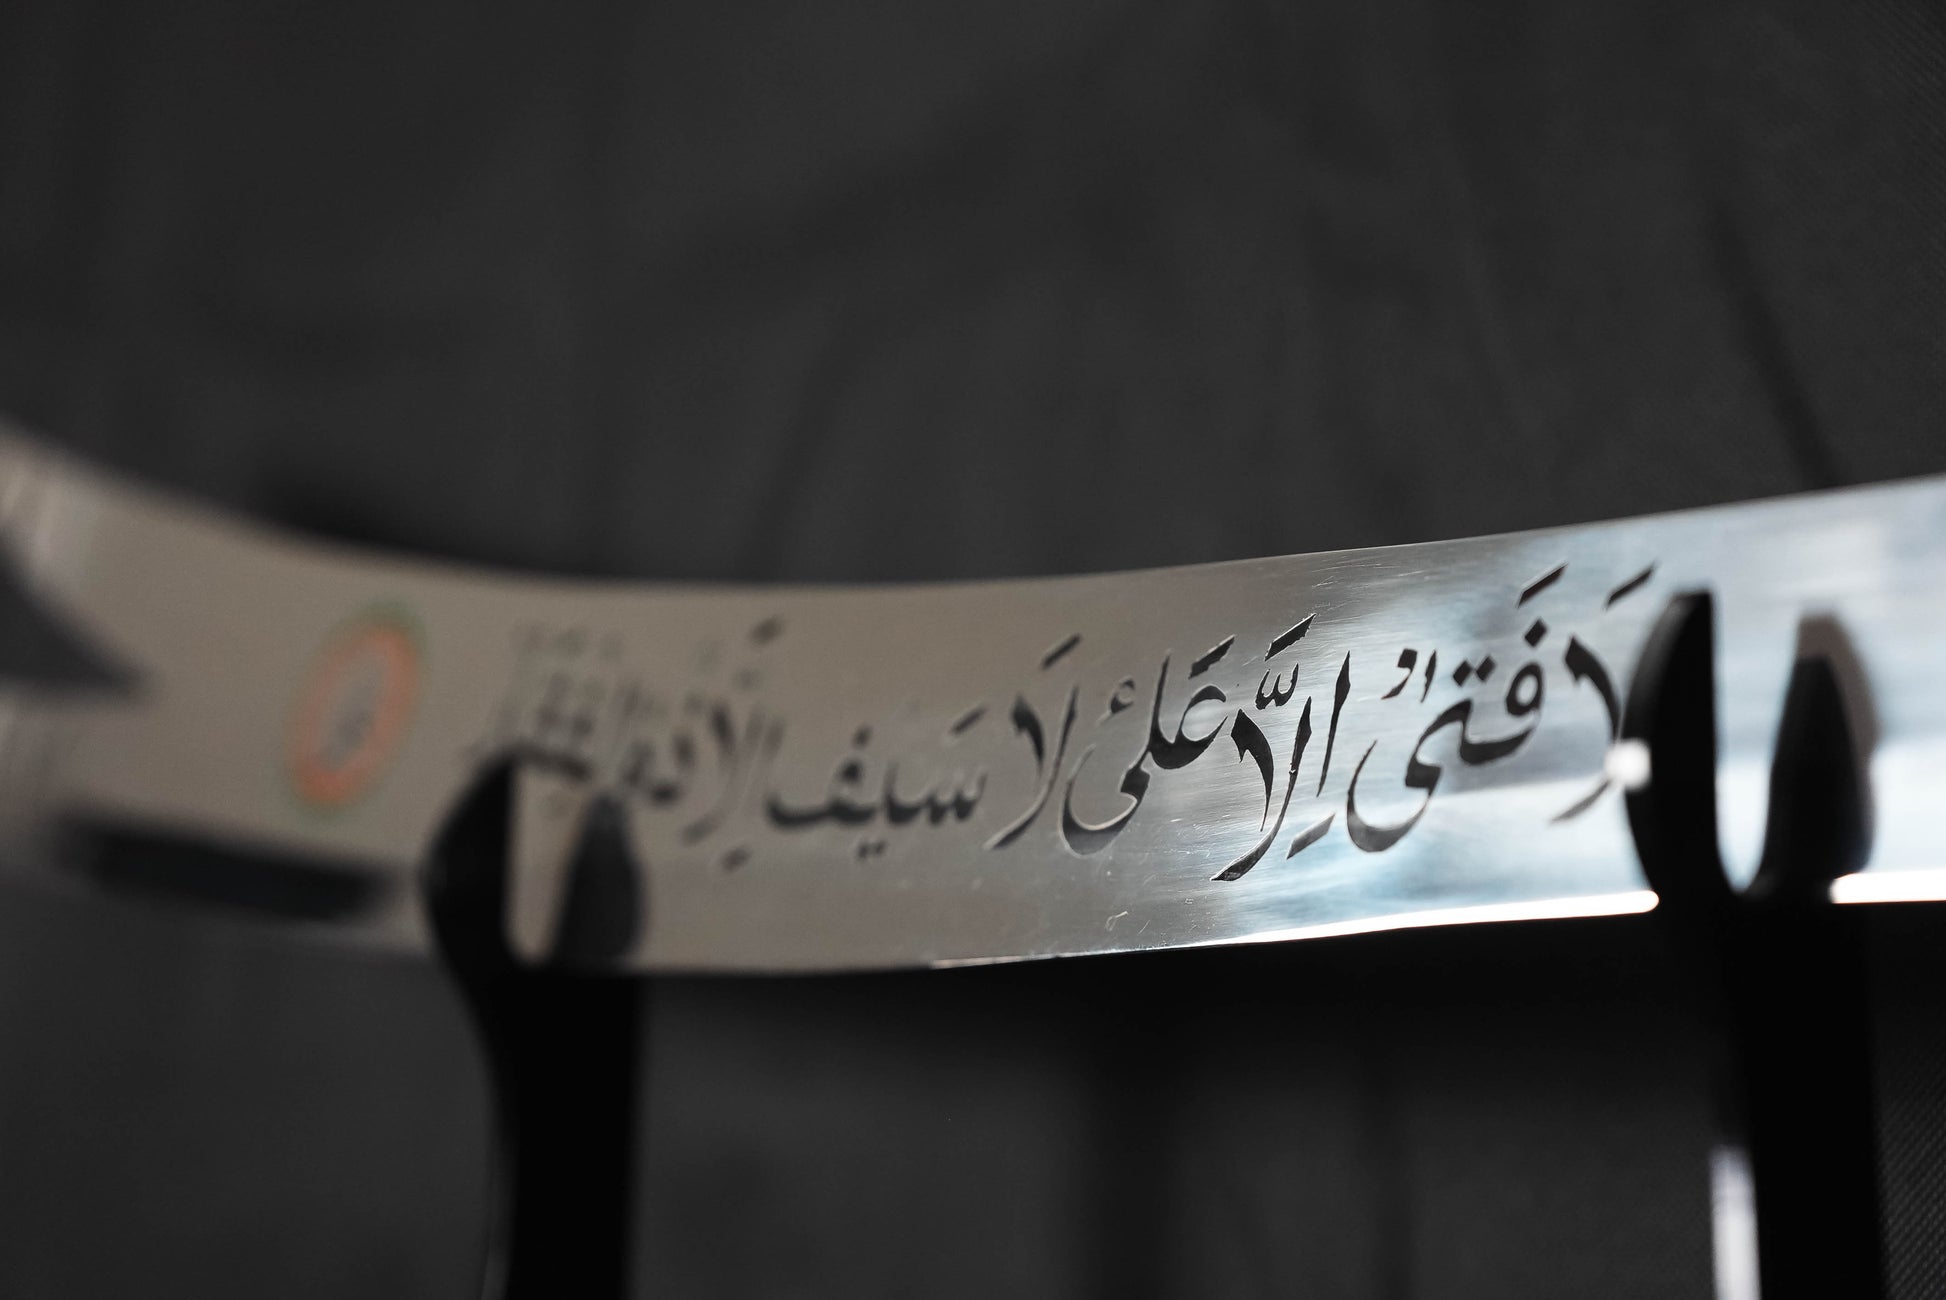 لَا فَتٰى إِلَّا عَلِيْ لَا سَيف إِلَّا ذو الفقار